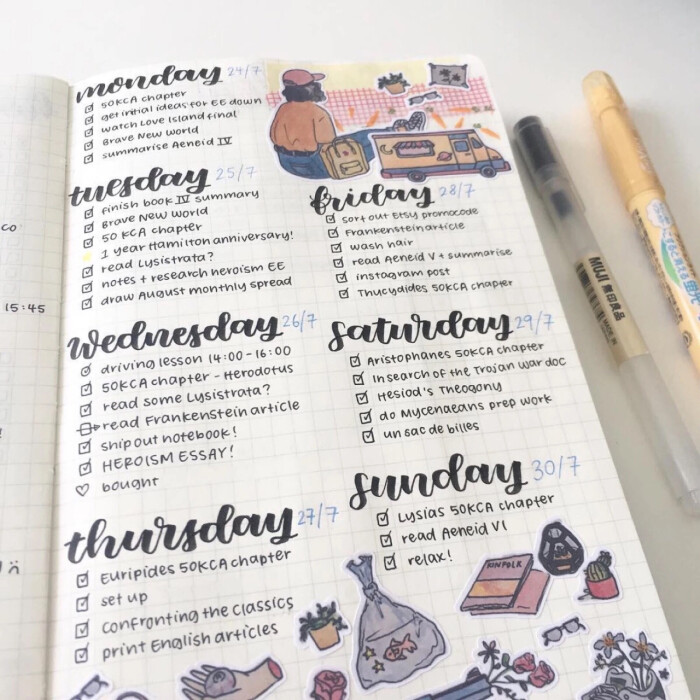 monday 24/7
50KCA chapter
get initial ideas for EE down
watch Love Island final
Brave New World
summarise Aeneid IV
tuesday 25/7
finish book IV summary
Brave New World
50 KCA chapter
1 year Hamilton anniversary!
read Lysistrata?
notes + research heroism EE
draw August monthly spread
wednesday 26/7
driving lesson 14:00-16:00
50KCA chapter - Herodotus
read some Lysistrata?
read Frankenstein article
ship out notebook!
HEROISM ESSAY!
♡ bought
thursday 27/7
Euripides 50KCA chapter
set up
confronting the classics
print English articles
friday 28/7
sort out Etsy promocode
Frankenstein article
wash hair
read Aeneid V + summarise
instagram post
Thucydides 50KCA chapter
saturday 29/7
Aristophanes 50KCA chapter
In search of the Trojan war doc
Hesiod's Theogony
do Mycenaeans prep work
un sac de billes
sunday 30/7
Lysias 50KCA chapter
read Aeneid VI
relax!
KINFOLK
co
15:45
MUJI 無印良品